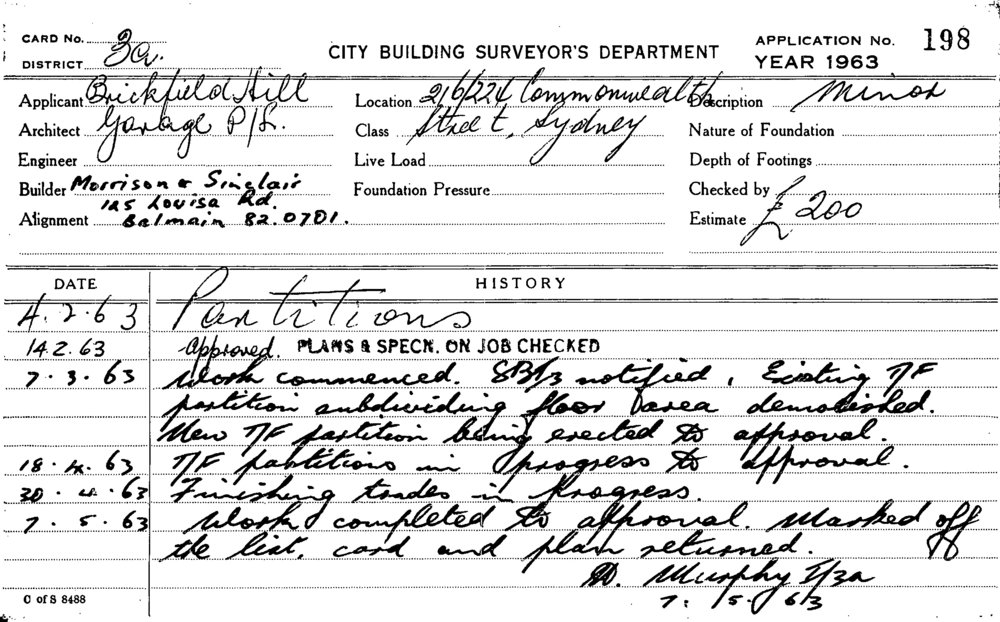 CARD No.
DISTRICT 3a.
CITY BUILDING SURVEYOR'S DEPARTMENT
APPLICATION No. 198
YEAR 1963
Applicant Brickfield Hill
Location 216/224 Commonwealth
Description Minor
Architect Garage P/L.
Class Street, Sydney
Nature of Foundation
Engineer
Live Load
Depth of Footings
Builder Morrison & Sinclair
Foundation Pressure
Checked by
125 Louisa Rd.
Alignment Balmain 82.0701.
Estimate £200
DATE HISTORY
4.2.63 Partitions
14.2.63 Approved. PLANS & SPECN. ON JOB CHECKED
7.3.63 Work commenced. notified, Existing T/F
partition subdividing floor area demolished.
New T/F partition being erected to approval.
18.4.63 T/F partitions in progress to approval.
30.4.63 Finishing trades in progress.
7.5.63 Work completed to approval. Marked off
the list, card and plan returned.
Murphy
7.5.63
C of S 8488